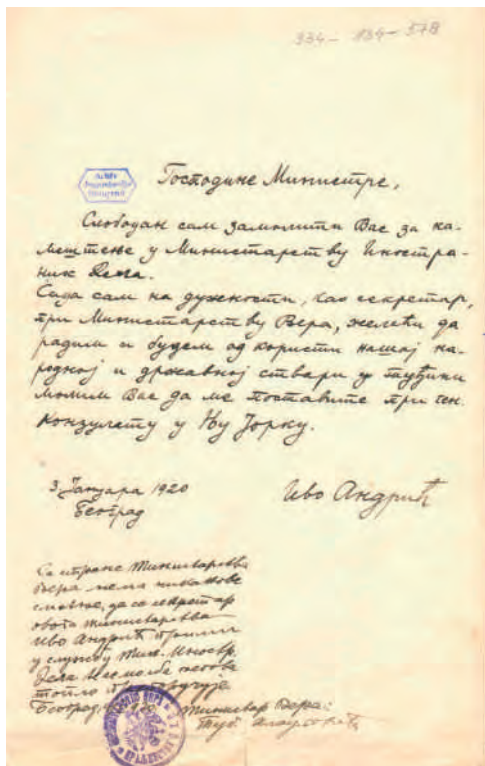 334 - 134 - 578
Господине Министре,
Слободан сам замолити Вас за на-
мештење у Министарству Иностра-
них Дела.
Сада сам на дужности, као секретар,
при Министарству Вера, желећи да
радим и будем од користи нашој на-
родној и државној ствари у туђини
молим Вас да ме поставите при ген.
Конзулату у Њу Јорку.
3 Јануара 1920
Београд
Иво Андрић
Са стране Министарства
вера нема никакове
сметње, да се секретар
овога министарства
Иво Андрић прими
у службу Мин. Иностр.
Дела
топло
Београд
Министар Вера: